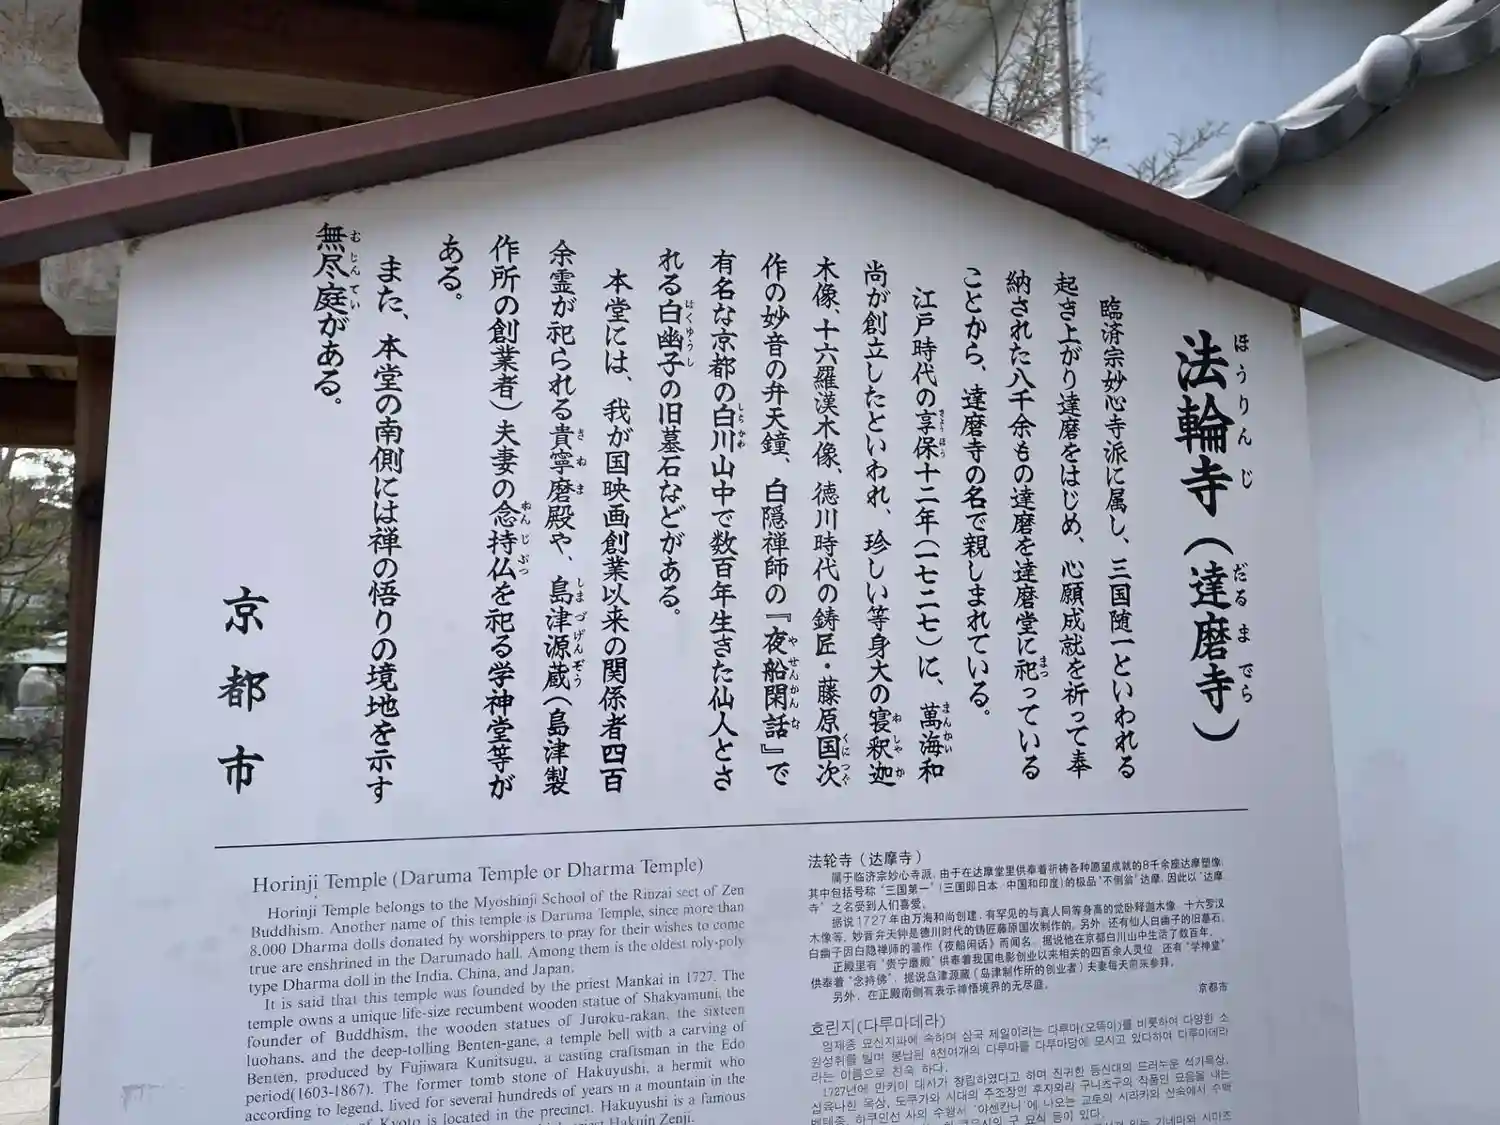 法輪寺（達磨寺）
ほうりんじ
だるまでら
臨済宗妙心寺派に属し、三国随一といわれる
起き上がり達磨をはじめ、心願成就を祈って奉
納された八千余もの達磨を達磨堂に祀っている
ことから、達磨寺の名で親しまれている。
江戸時代の享保十二年（一七二七）に、萬海和
尚が創立したといわれ、珍しい等身大の寝釈迦
木像、十六羅漢木像、徳川時代の鋳匠・藤原国次
作の妙音の弁天鐘、白隠禅師の『夜船閑話』で
有名な京都の白川山中で数百年生きた仙人とさ
れる白幽子の旧墓石などがある。
本堂には、我が国映画創業以来の関係者四百
余霊が祀られる貴寧磨殿や、島津源蔵（島津製
作所の創業者）夫妻の念持仏を祀る学神堂等が
ある。
また、本堂の南側には禅の悟りの境地を示す
無尽庭がある。
京都市
Horinji Temple (Daruma Temple or Dharma Temple)
Horinji Temple belongs to the Myoshinji School of the Rinzai sect of Zen
Buddhism. Another name of this temple is Daruma Temple, since more than
8,000 Dharma dolls donated by worshippers to pray for their wishes to come
true are enshrined in the Darumado hall. Among them is the oldest roly-poly
type Dharma doll in the India, China, and Japan.
It is said that this temple was founded by the priest Mankai in 1727. The
temple owns a unique life-size recumbent wooden statue of Shakyamuni, the
founder of Buddhism, the wooden statues of Juroku-rakan, the sixteen
luohans, and the deep-tolling Benten-gane, a temple bell with a carving of
Benten, produced by Fujiwara Kunitsugu, a casting craftsman in the Edo
period(1603-1867). The former tomb stone of Hakuyushi, a hermit who
according to legend, lived for several hundreds of years in a mountain in the
of Kyoto is located in the precinct. Hakuyushi is a famous
Hakuin Zenji.
法轮寺（达摩寺）
属于临济宗妙心寺派，由于在达摩堂里供奉着祈祷各种愿望成就的8千余座达摩塑像，
其中包括号称“三国第一”（三国即日本、中国和印度）的极品“不倒翁”达摩，因此以“达摩
寺”之名受到人们喜爱。
据说1727年由万海和尚创建，有罕见的与真人同等身高的觉卧释迦木像、十六罗汉
木像等，妙音弁天钟是德川时代的铸匠藤原国次制作的。另外，还有仙人白幽子的旧墓石，
白幽子因白隐禅师的著作《夜船闲话》而闻名，据说他在京都白川山中生活了数百年。
正殿里有“贵宁磨殿”供奉着我国电影创业以来相关的四百余人灵位，还有“学神堂”
供奉着“念持佛”，据说岛津源藏（岛津制作所的创业者）夫妻每天前来参拜。
另外，在正殿南侧有表示禅悟境界的无尽庭。
京都市
호린지(다루마데라)
임제종 묘신지파에 속하며 삼국 제일이라는 다루마(오뚝이)를 비롯하여 다양한 소
원성취를 빌며 봉납된 8천여개의 다루마를 다루마당에 모시고 있다하여 다루마데라
라는 이름으로 친숙 하다.
1727년에 만카이 대사가 창립하였다고 하며 진귀한 등신대의 드러누운 석가목상,
십육나한 목상, 도쿠가와 시대의 주조장인 후지와라 구니츠구의 작품인 묘음을 내는